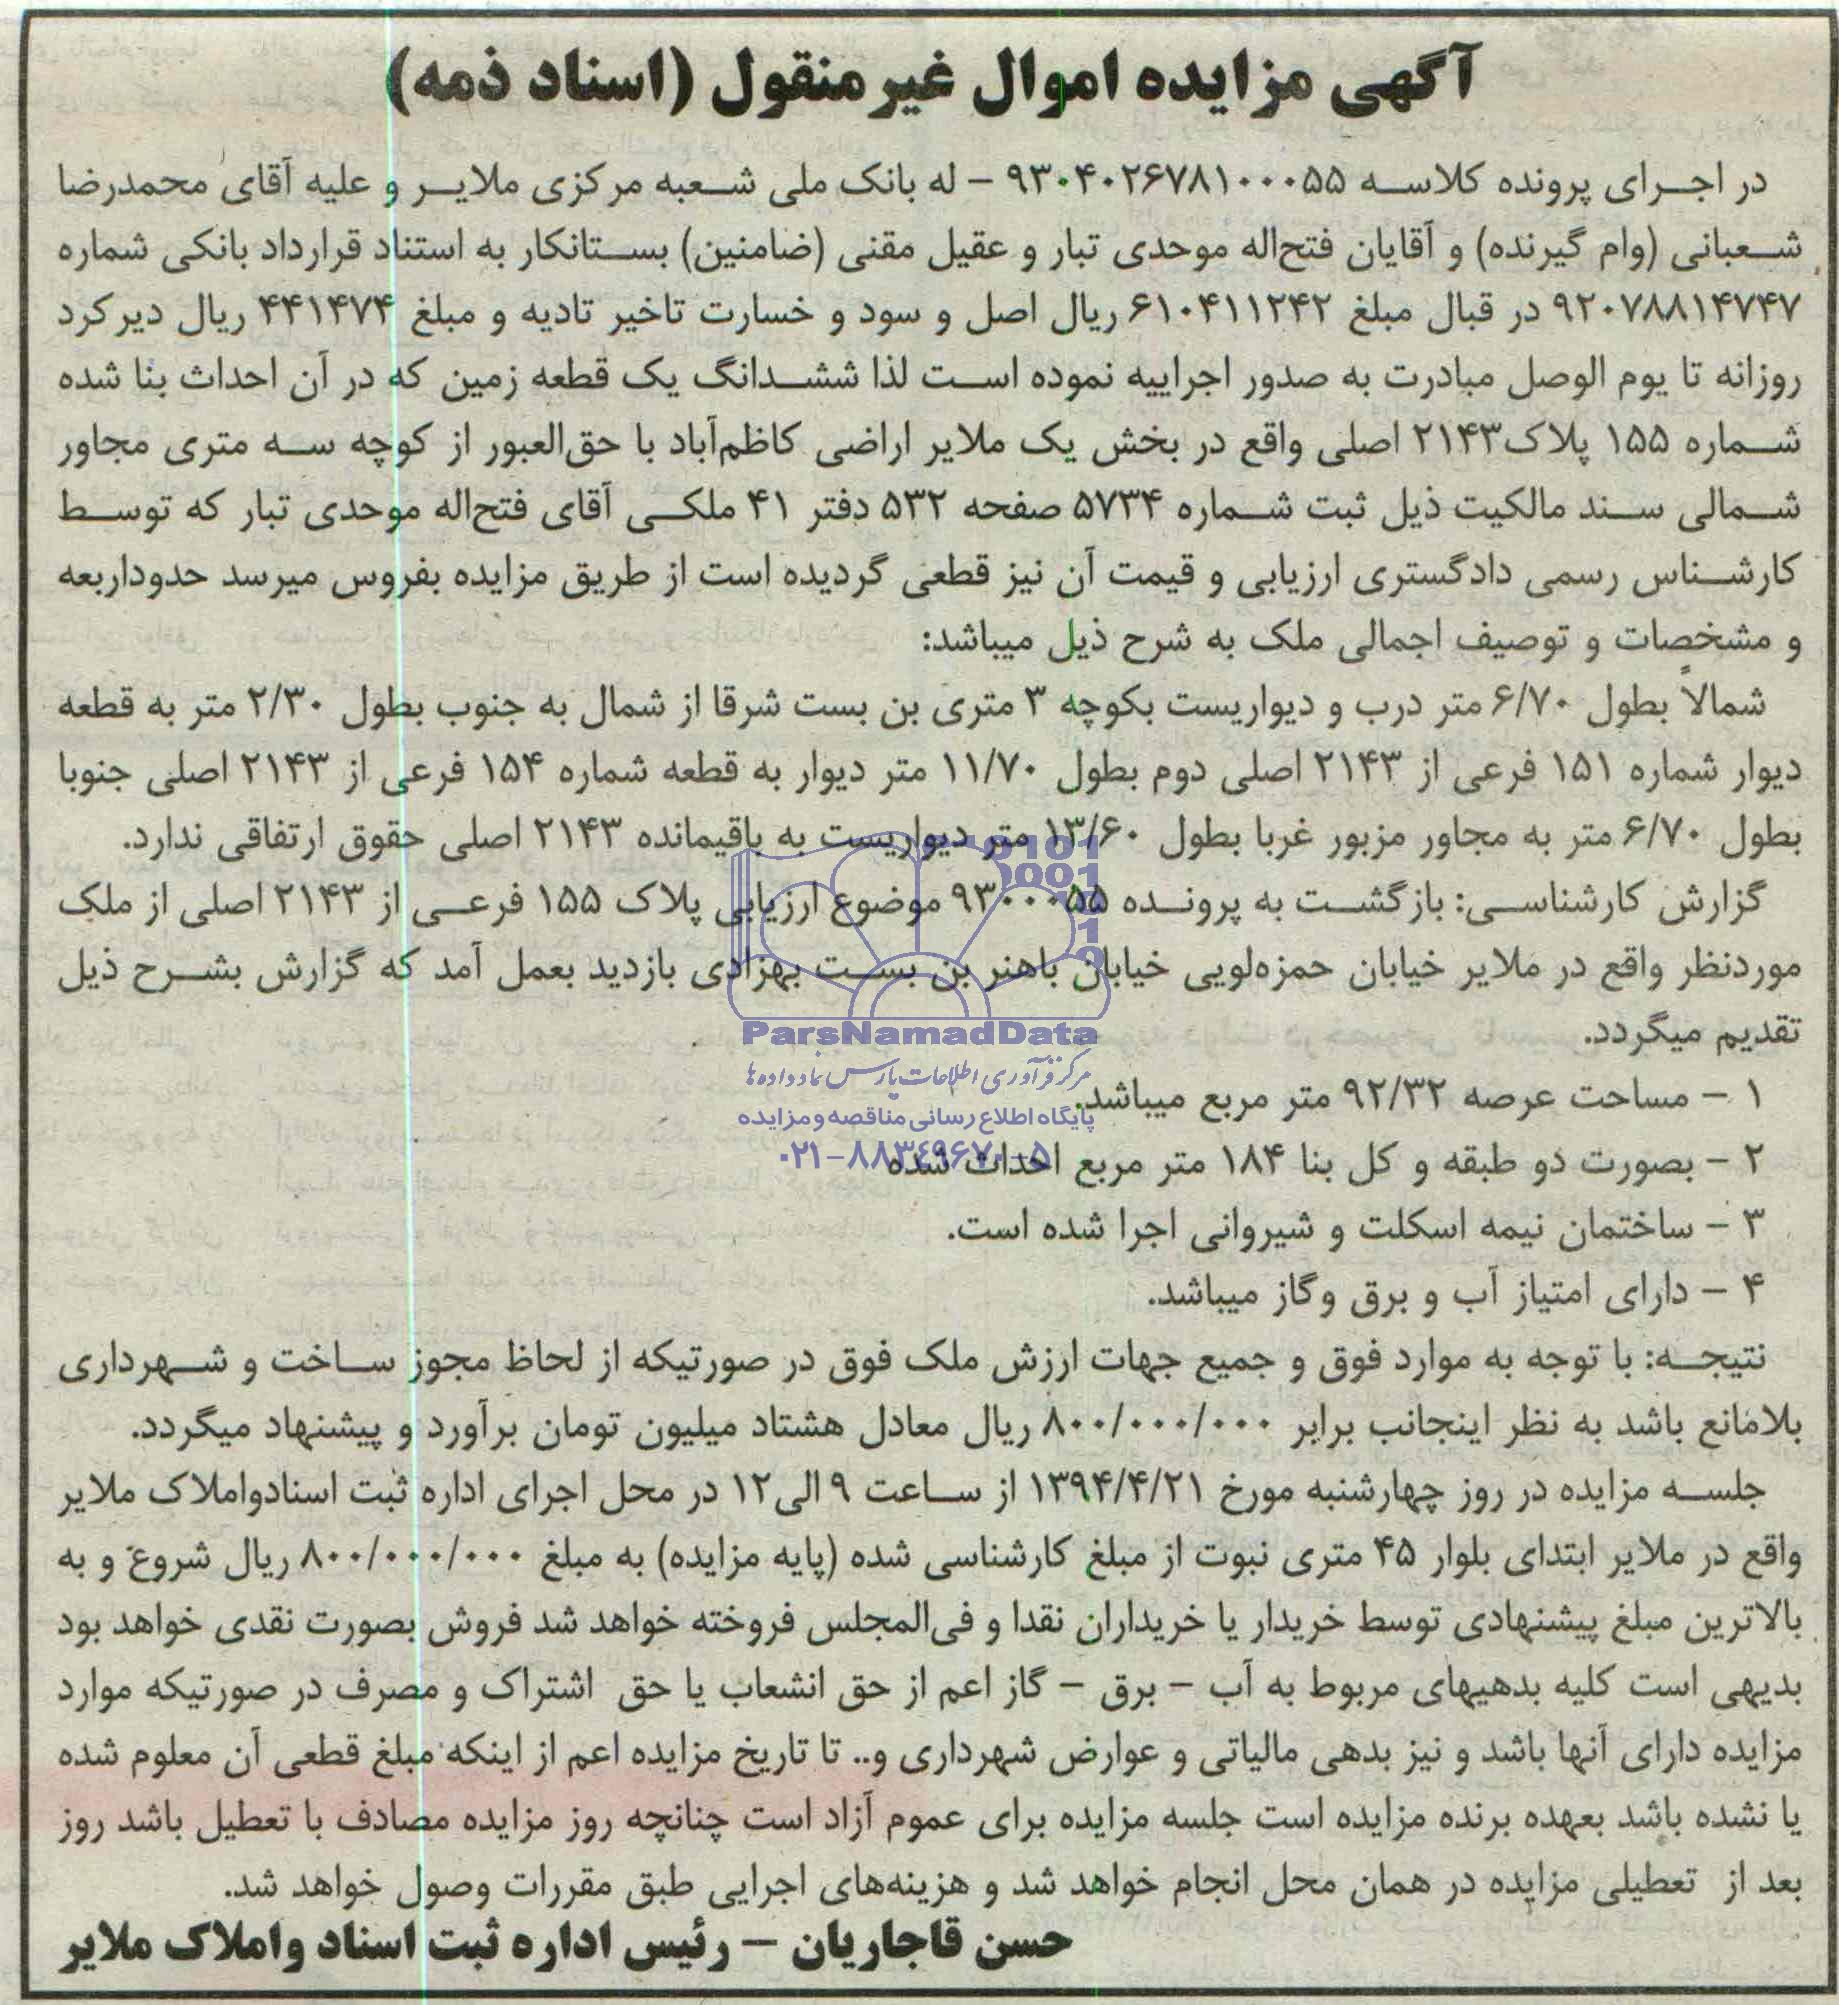 آگهی مزایده اموال غیرمنقول (اسناد ذمه)
در اجرای پرونده کلاسه ۹۳۰۴۰۲۶۷۸۱۰۰۰۵۵ – له بانک ملی شعبه مرکزی ملایر و علیه آقای محمدرضا
شعبانی (وام گیرنده) و آقایان فتح‌اله موحدی تبار و عقیل مقنی (ضامنین) بستانکار به استناد قرارداد بانکی شماره
۹۲۰۷۸۸۱۴۷۴۷ در قبال مبلغ ۶۱۰۴۱۱۲۴۲ ریال اصل و سود و خسارت تاخیر تادیه و مبلغ ۴۴۱۴۷۴ ریال دیرکرد
روزانه تا یوم الوصل مبادرت به صدور اجراییه نموده است لذا ششدانگ یک قطعه زمین که در آن احداث بنا شده
شماره ۱۵۵ پلاک۲۱۴۳ اصلی واقع در بخش یک ملایر اراضی کاظم‌آباد با حق‌العبور از کوچه سه متری مجاور
شمالی سند مالکیت ذیل ثبت شماره ۵۷۳۴ صفحه ۵۳۲ دفتر ۴۱ ملکی آقای فتح‌اله موحدی تبار که توسط
کارشناس رسمی دادگستری ارزیابی و قیمت آن نیز قطعی گردیده است از طریق مزایده بفروس میرسد حدوداربعه
و مشخصات و توصیف اجمالی ملک به شرح ذیل میباشد:
شمالاً بطول ۶/۷۰ متر درب و دیواریست بکوچه ۳ متری بن بست شرقا از شمال به جنوب بطول ۲/۳۰ متر به قطعه
دیوار شماره ۱۵۱ فرعی از ۲۱۴۳ اصلی دوم بطول ۱۱/۷۰ متر دیوار به قطعه شماره ۱۵۴ فرعی از ۲۱۴۳ اصلی جنوبا
بطول ۶/۷۰ متر به مجاور مزبور غربا بطول ۱۳/۶۰ متر دیواریست به باقیمانده ۲۱۴۳ اصلی حقوق ارتفاقی ندارد.
گزارش کارشناسی: بازگشت به پرونده ۹۳۰۰۰۵۵ موضوع ارزیابی پلاک ۱۵۵ فرعی از ۲۱۴۳ اصلی از ملک
موردنظر واقع در ملایر خیابان حمزه‌لویی خیابان باهنر بن بست بهزادی بازدید بعمل آمد که گزارش بشرح ذیل
تقدیم میگردد.
ParsNamadData
مرکز فرآوری اطلاعات پارس نماد داده ها
۱ – مساحت عرصه ۹۲/۳۲ متر مربع میباشد.
پایگاه اطلاع رسانی مناقصه و مزایده
۲ – بصورت دو طبقه و کل بنا ۱۸۴ متر مربع احداث شده
۰۲۱–۸۸۳۴۹۶۷۰–۵
۳ – ساختمان نیمه اسکلت و شیروانی اجرا شده است.
۴ – دارای امتیاز آب و برق وگاز میباشد.
نتیجه: با توجه به موارد فوق و جمیع جهات ارزش ملک فوق در صورتیکه از لحاظ مجوز ساخت و شهرداری
بلامانع باشد به نظر اینجانب برابر ۸۰۰/۰۰۰/۰۰۰ ریال معادل هشتاد میلیون تومان برآورد و پیشنهاد میگردد.
جلسه مزایده در روز چهارشنبه مورخ ۱۳۹۴/۴/۲۱ از ساعت ۹ الی۱۲ در محل اجرای اداره ثبت اسنادواملاک ملایر
واقع در ملایر ابتدای بلوار ۴۵ متری نبوت از مبلغ کارشناسی شده (پایه مزایده) به مبلغ ۸۰۰/۰۰۰/۰۰۰ ریال شروع و به
بالاترین مبلغ پیشنهادی توسط خریدار یا خریداران نقدا و فی‌المجلس فروخته خواهد شد فروش بصورت نقدی خواهد بود
بدیهی است کلیه بدهیهای مربوط به آب – برق – گاز اعم از حق انشعاب یا حق اشتراک و مصرف در صورتیکه موارد
مزایده دارای آنها باشد و نیز بدهی مالیاتی و عوارض شهرداری و.. تا تاریخ مزایده اعم از اینکه مبلغ قطعی آن معلوم شده
یا نشده باشد بعهده برنده مزایده است جلسه مزایده برای عموم آزاد است چنانچه روز مزایده مصادف با تعطیل باشد روز
بعد از تعطیلی مزایده در همان محل انجام خواهد شد و هزینه‌های اجرایی طبق مقررات وصول خواهد شد.
حسن قاجاریان – رئیس اداره ثبت اسناد واملاک ملایر